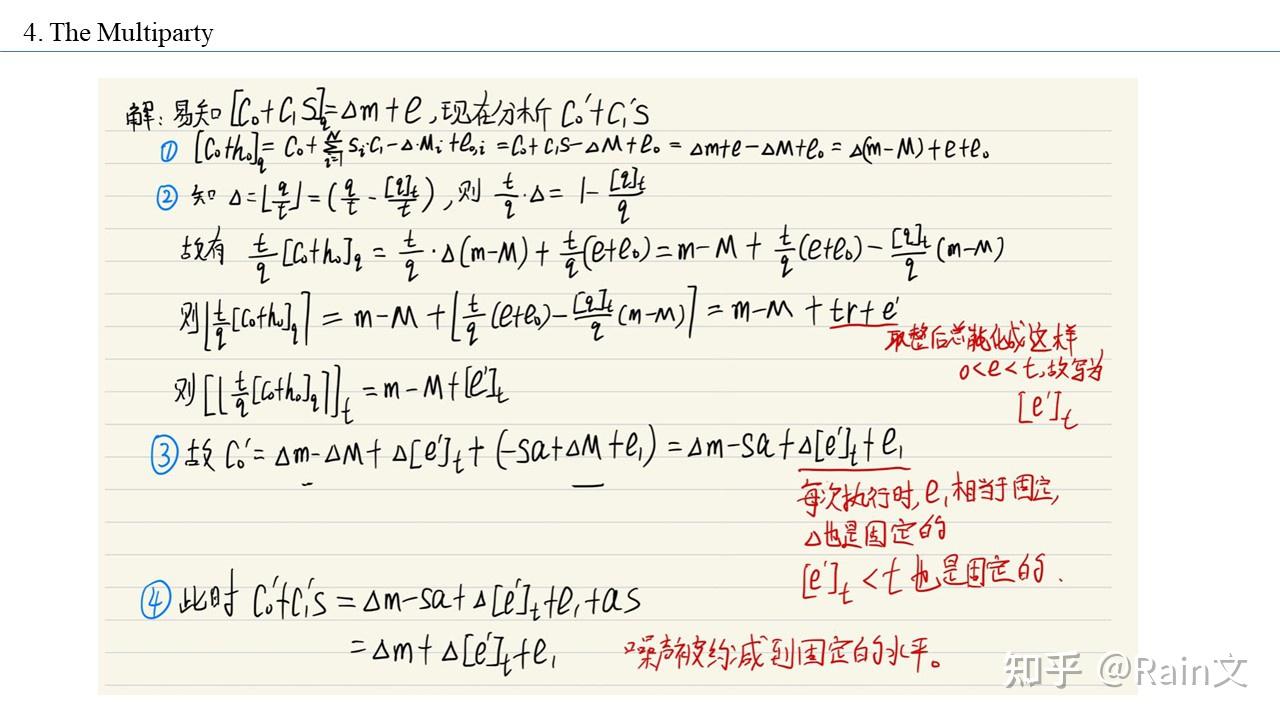 4. The Multiparty
解: 易知 [C₀+C₁S]_q=Δm+e, 现在分析 C₀'+C₁'S
① [C₀+h₀]_q = C₀+∑_{i=1}^{N} Sᵢ·C₁-Δ·Mᵢ+e₀,ᵢ = C₀+C₁S-ΔM+e₀ = Δm+e-ΔM+e₀ = Δ(m-M)+e+e₀
② 知 Δ=⌊q/t⌋=(q/t - [q]_t/t), 则 t/q·Δ= 1-[q]_t/q
故有 t/q [C₀+h₀]_q = t/q·Δ(m-M)+t/q(e+e₀)=m-M+t/q(e+e₀)-[q]_t/q (m-M)
则⌊t/q[C₀+h₀]_q⌉ = m-M+⌊t/q(e+e₀)-[q]_t/q(m-M)⌉ = m-M+tr+e'
取整后总能化成这样
0<e<t,故写为
[e']_t
则 [⌊t/q[C₀+h₀]_q⌉]_t = m-M+[e']_t
③ 故 C₀'= Δm-ΔM+Δ[e']_t+(-sa+ΔM+e₁)=Δm-sa+Δ[e']_t+e₁
每次执行时,e₁相当于固定,
Δ也是固定的
[e']_t<t 也是固定的.
④ 此时 C₀'+C₁'S = Δm-sa+Δ[e']_t+e₁+as
=Δm+Δ[e']_t+e₁ 噪声被约减到固定的水平。
知乎 @Rain文